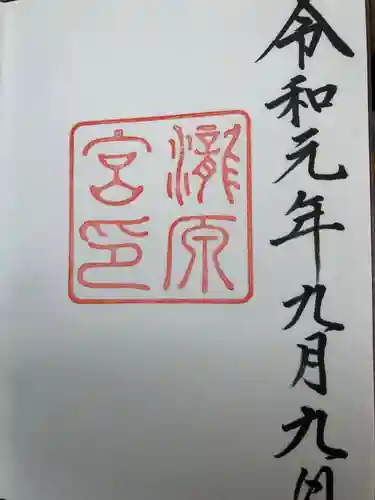 令和元年九月九日
瀧原
宮印